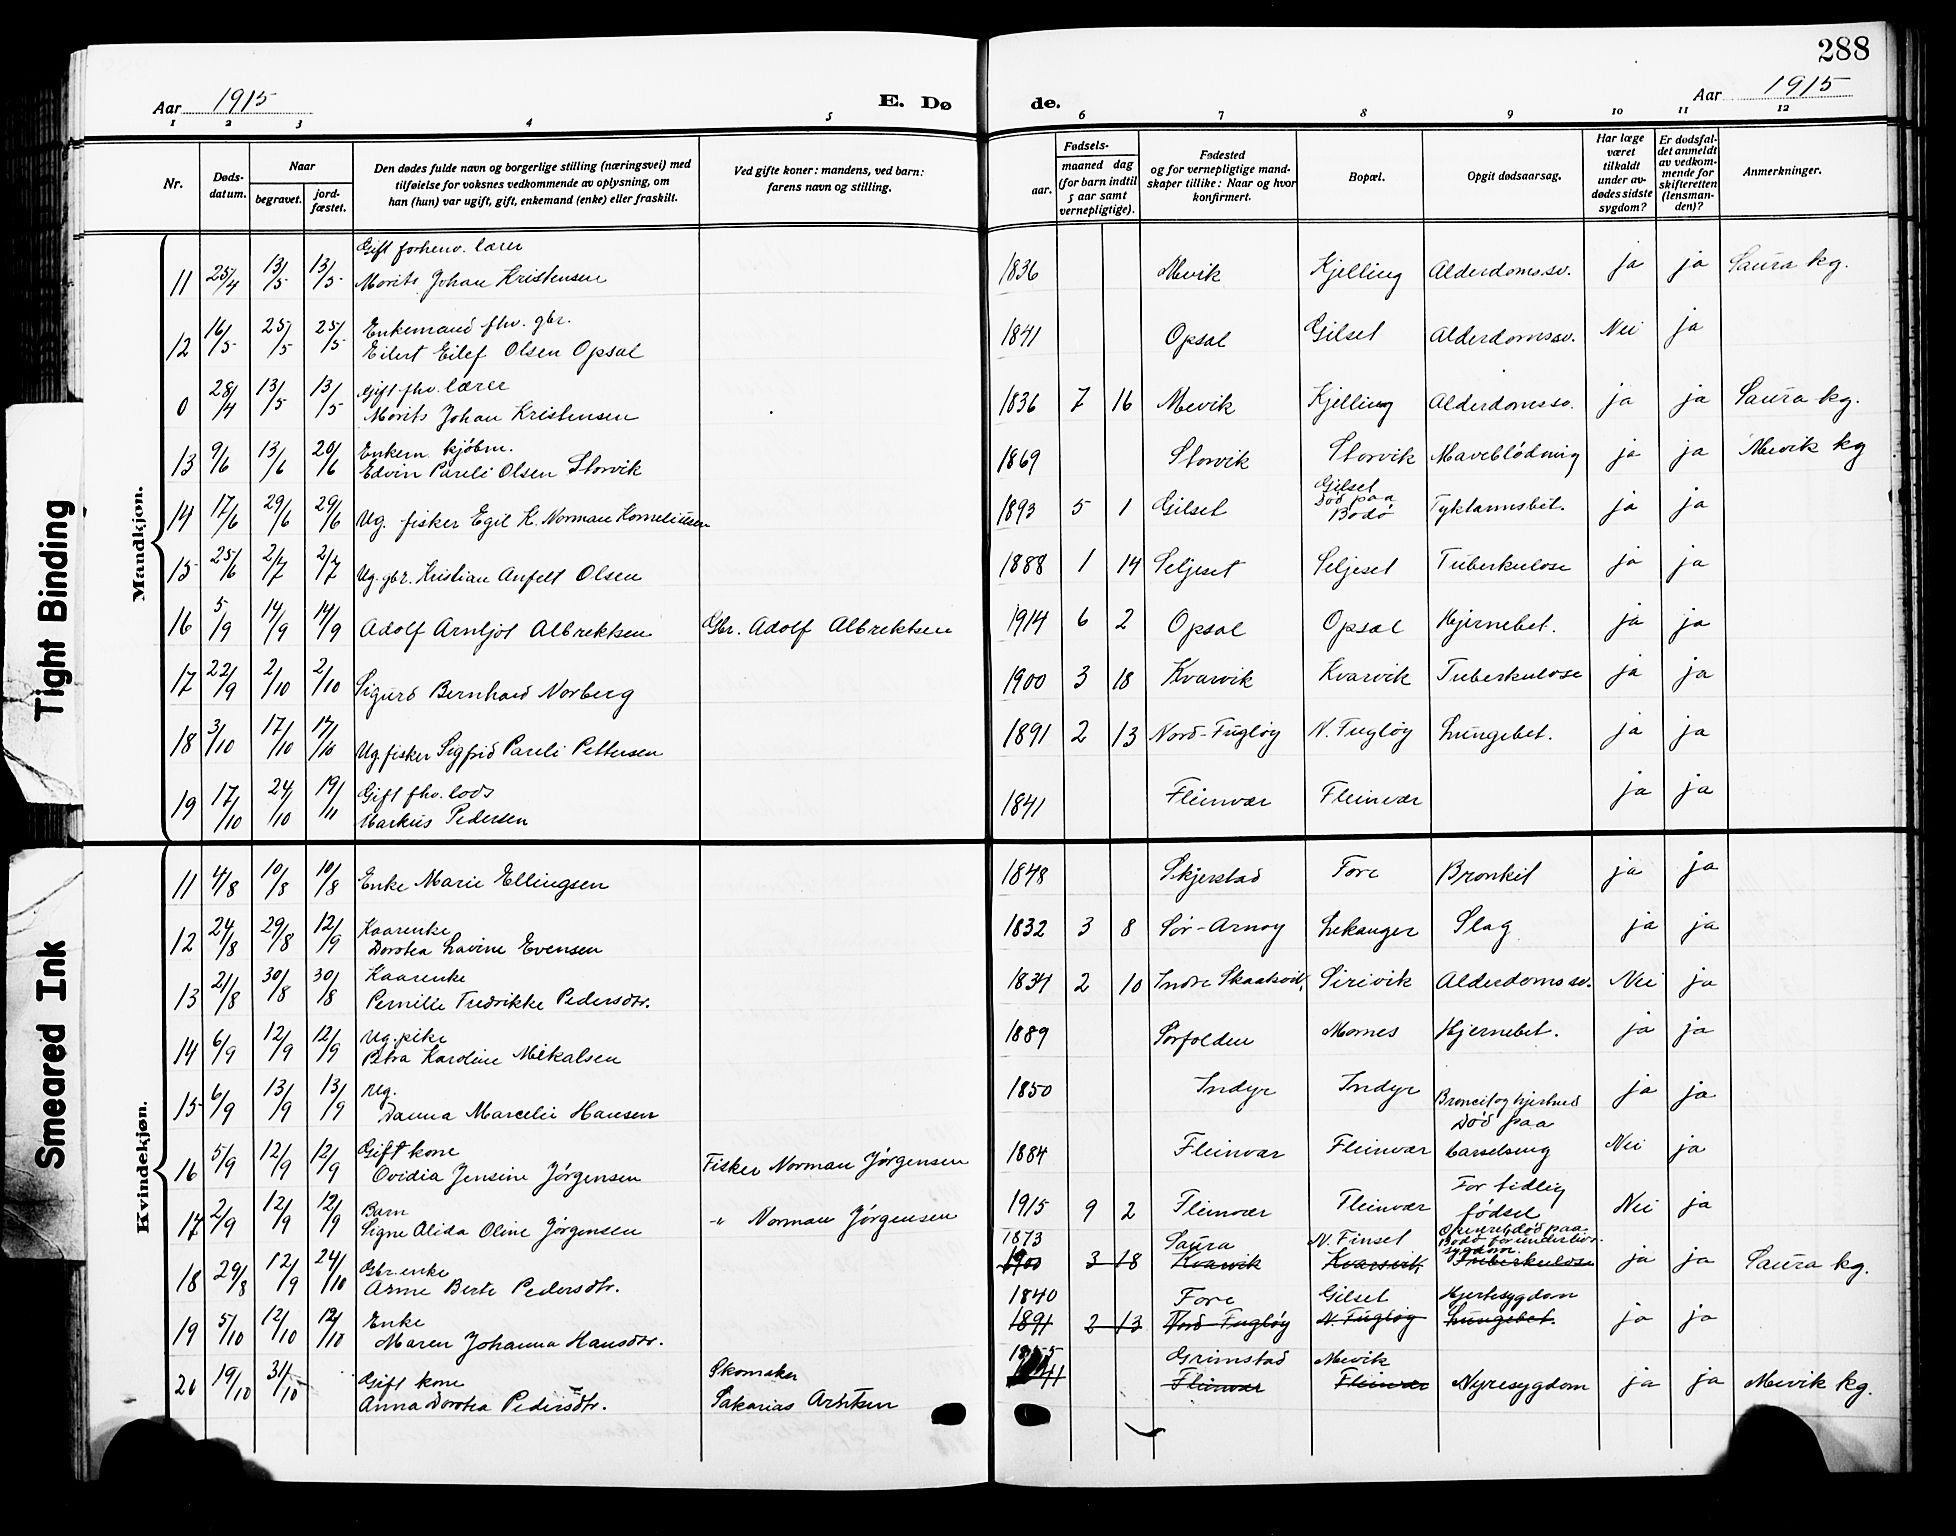 288
Aar 1915
E. Dø
de.
Aar 1915
1 2 3 4 5 6 7 8 9 10 11 12
Nr.
Døds-
datum.
Naar
begravet.
jord-
fæstet.
Den dødes fulde navn og borgerlige stilling (næringsvei) med
tilføielse for voksnes vedkommende av oplysning, om
han (hun) var ugift, gift, enkemand (enke) eller fraskilt.
Ved gifte koner: mandens, ved barn:
farens navn og stilling.
Fødsels-
aar.
maaned dag
(for barn indtil
5 aar samt
vernepligtige).
Fødested
og for vernepligtige mand-
skaper tillike: Naar og hvor
konfirmert.
Bopæl.
Opgit dødsaarsag.
Har læge
været
tilkaldt
under av-
dødes sidste
sygdom?
Er dødsfal-
det anmeldt
av vedkom-
mende for
skifteretten
(lensman-
den)?
Anmerkninger.
Mandkjøn.
Gift forhenv. lærer
11 25/4 13/5 13/5 Morits Johan Kristensen 1836 Mevik Kjelling Alderdomssv. ja ja Saura kg.
Enkemand fhv. gbr.
12 16/5 25/5 25/5 Eilert Eilef Olsen Opsal 1841 Opsal Gilset Alderdomssv. Nei ja
Gift fhv. lærer
0 28/4 13/5 13/5 Morits Johan Kristensen 1836 7 16 Mevik Kjelling Alderdomssv. ja ja Saura kg.
Enkem. kjøbm.
13 9/6 13/6 20/6 Edvin Pareli Olsen Storvik 1869 Storvik Storvik Maveblödning ja ja Mevik kg
14 17/6 29/6 29/6 Ug. fisker Egil K. Norman Korneliusen 1893 5 1 Gilset Gilset
død paa
Bodø Tyktarmsbet. ja ja
15 25/6 2/7 2/7 Ug. gbr. Kristian Anfelt Olsen 1888 1 14 Seljeset Seljeset Tuberkulose ja ja
16 5/9 14/9 14/9 Adolf Arnljot Albrektsen Gbr. Adolf Albrektsen 1914 6 2 Opsal Opsal Hjernebet. ja ja
17 22/9 2/10 2/10 Sigurd Bernhard Norberg 1900 3 18 Kvarvik Kvarvik Tuberkulose ja ja
18 3/10 17/10 17/10 Ug. fisker Sigfrid Pareli Pettersen 1891 2 13 Nord-Fugløy N. Fugløy Lungebet. ja ja
Gift fhv. lods
19 17/10 24/10 19/11 Markus Pedersen 1841 Fleinvær Fleinvær ja ja
Kvindekjøn.
11 4/8 10/8 10/8 Enke Marie Ellingsen 1848 Skjerstad Fore Bronkit ja ja
Kaarenke
12 24/8 29/8 12/9 Dorotea Lavine Evensen 1832 3 8 Sør-Arnøy Lekanger Slag ja ja
Kaarenke
13 21/8 30/8 30/8 Pernille Fredrikke Pedersdtr. 1834 2 10 Indre Skaatsvik Sirivik Alderdomssv. Nei ja
Ug. pike
14 6/9 12/9 12/9 Petra Karoline Mikalsen 1889 Sørfolden Mornes Hjernebet. ja ja
Ug.
15 6/9 13/9 13/9 Danna Marcelie Hansen 1850 Indyr Indyr Broncit og hjertefeil ja ja
Gift kone
16 5/9 12/9 12/9 Ovidia Jensine Jörgensen Fisker Norman Jörgensen 1884 Fleinvær Fleinvær Død paa
barselseng Nei ja
Barn
17 2/9 12/9 12/9 Signe Alida Oline Jörgensen -"- Norman Jörgensen 1915 9 2 Fleinvær Fleinvær For tidlig
födsel Nei ja
Gbr. enke
18 29/8 12/9 24/10 Anne Berte Pedersdtr. 1873 Saura N. Finset
1900 3 18 Kvarvik Kvarvik Tuberkulose ja ja Saura kg.
Enke
19 5/10 12/10 12/10 Maren Johanna Hansdtr. 1840 Fore Gilset Hjertesygdom
1891 2 13 Nord-Fugløy N. Fugløy Lungebet. ja ja
Gift kone
20 19/10 31/10 Anna Dorotea Pedersdtr. Skomaker
Sakarias Arntsen Grimstad Mevik
Fleinvær Fleinvær Nyresygdom ja ja Mevik kg.
Tight Binding
Smeared Ink